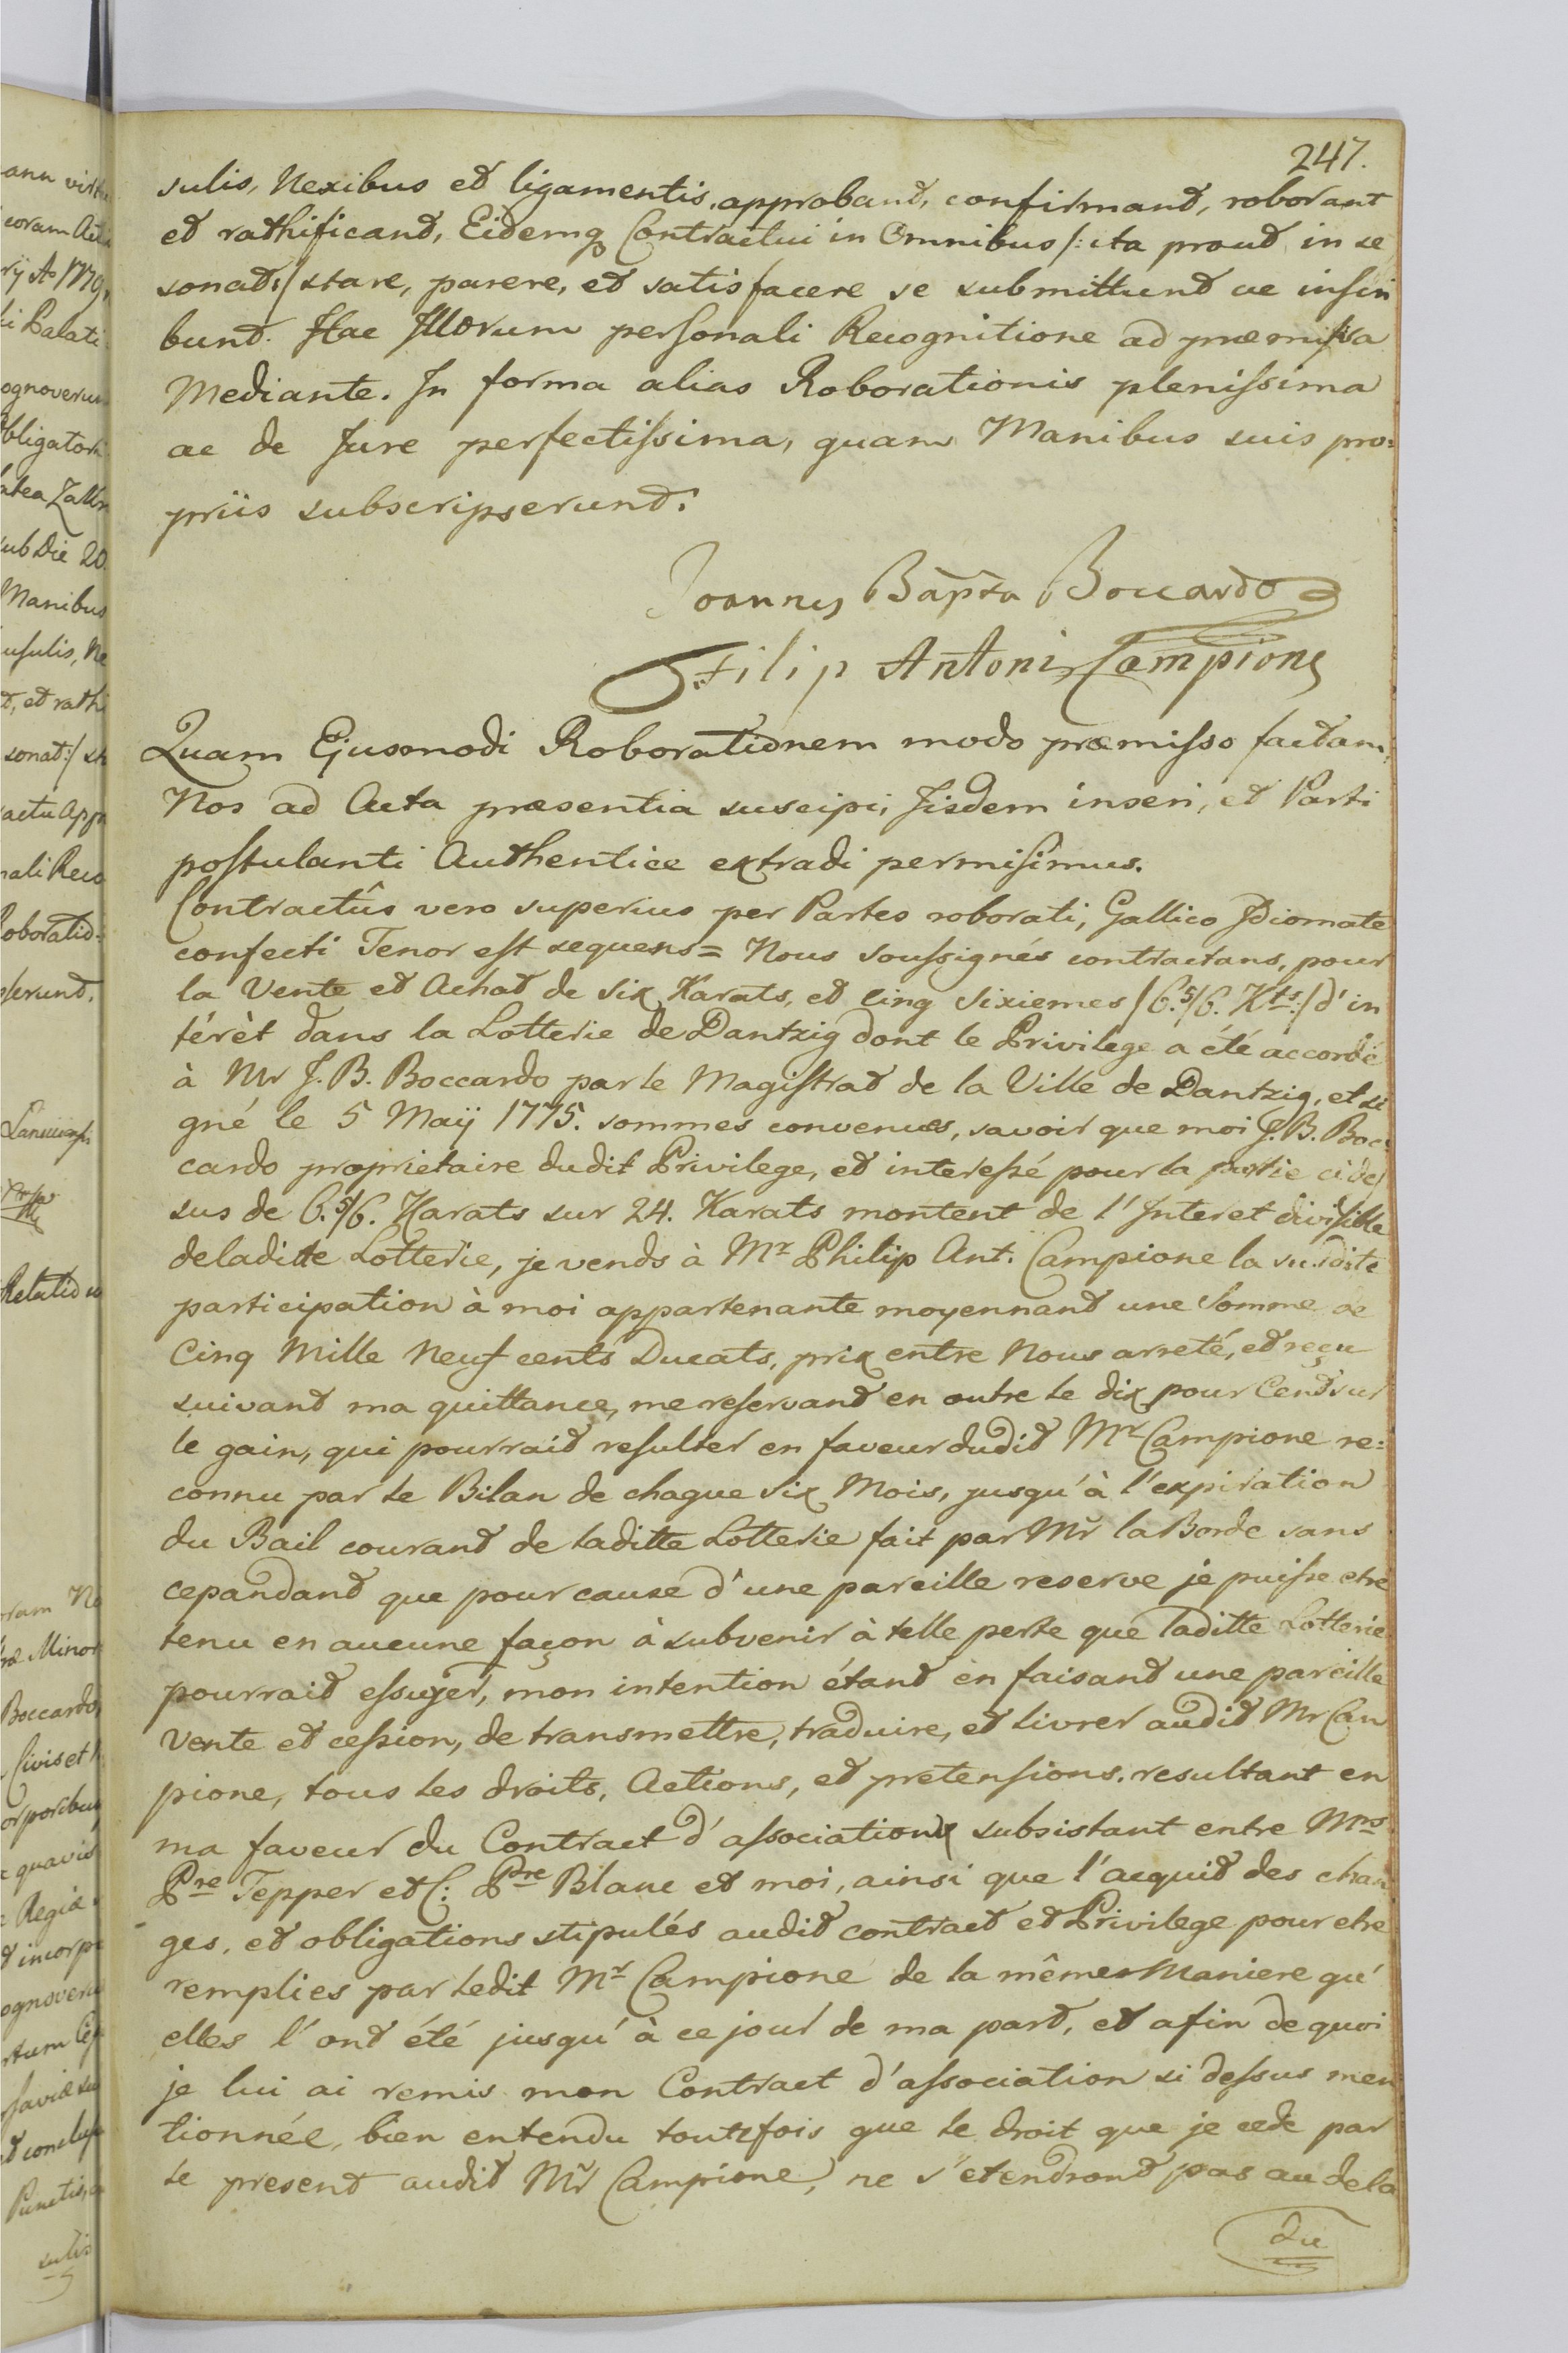 247.
sulis, Nexibus et ligamentis, approband, confirmand, roborant
et rathificand, Eidemq Contractui in Omnibus /: ita prout in se
sonat :/ stare, parere, et satisfacere se submittunt ac inscri
bunt. Hac Illorum personali Recognitione ad præmissa
Mediante. In forma alias Roborationis plenissima
ac de Jure perfectissima, quam Manibus suis pro=
priis subscripserunt.
Joannes Bapta Boccardo
Filip Antoni Campioni
Quam Ejusmodi Roborationem modo præmisso factam,
Nos ad Acta præsentia suscipi, Iisdem inseri, et Parti
postulanti Authentice extradi permisimus.
Contractûs vero superius per Partes roborati, Gallico Idiomate
confecti Tenor est sequens = Nous soussignés contractans, pour
la Vente et Achat de six Karats, et cinq sixiemes /6.5/6. Kts:/ d'in
térèt dans la Lotterie de Dantzig dont le Privilege a été accordé
à Mr J. B. Boccardo par le Magistrat de la Ville de Dantzig, et si
gné le 5 Maÿ 1775. sommes convenues, savoir que moi J. B. Boc=
cardo proprietaire dudit Privilege, et interessé pour la partie ci des
sus de 6.5/6. Karats sur 24. Karats montent de l'Interet divisible
deladitte Lotterie, je vends à Mr Philip Ant. Campione la susdite
participation à moi appartenante moyennant une Somme de
Cinq Mille Neuf cents Ducats, prix entre Nous arreté, et reçu
suivant ma quittance, me reservant en outre le dix pour Cent sur
le gain, qui pourrait resulter en faveur dudit Mr Campione re=
connu par le Bilan de chaque six Mois, jusqu'à l'expiration
du Bail courant de laditte Lotterie fait par Mr la Borde sans
cepandant que pour cause d'une pareille reserve je puisse etre
tenu en aucune façon à subvenir à telle perte que laditte Lotterie
pourrait essuyer, mon intention étant en faisant une pareille
Vente et cession, de transmettre, traduire, et livrer audit Mr Cam
pione, tous les droits, Actions, et pretensions, resultant en
ma faveur du Contract d'association subsistant entre Mrs
Pre Tepper et C: Pre Blanc et moi, ainsi que l'acquit des char
ges, et obligations stipulés audit contract et Privilege pour etre
remplies par ledit Mr Campione de la même Maniere qu'
elles l'ont été jusqu'à ce jour de ma part, et afin de quoi
je lui ai remis mon Contract d'association si dessus men
tionnée, bien entendu toutefois que le droit que je cede par
le present audit Mr Campione, ne s'etendront pas au dela
du